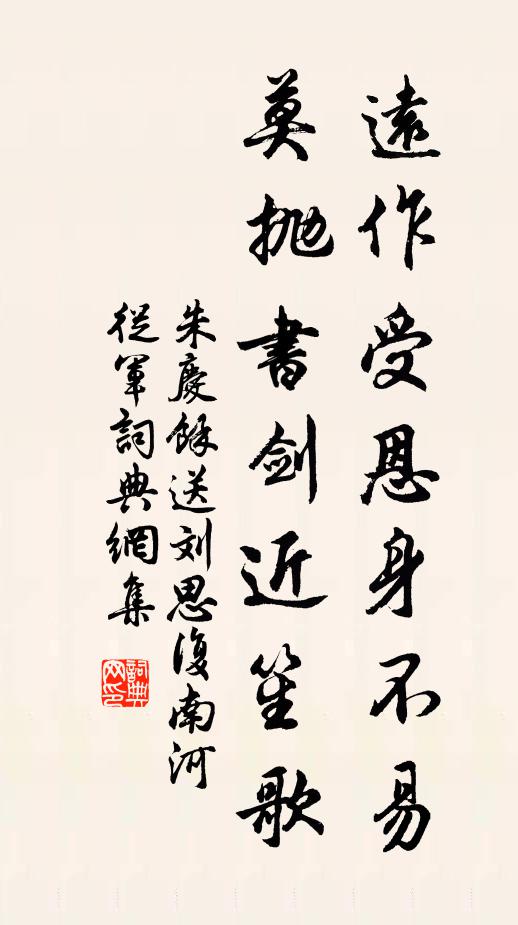 遠作受恩身不易
莫抛書劍近笙歌
朱慶餘送刘思復南河
從軍詞典網集
詞典网印